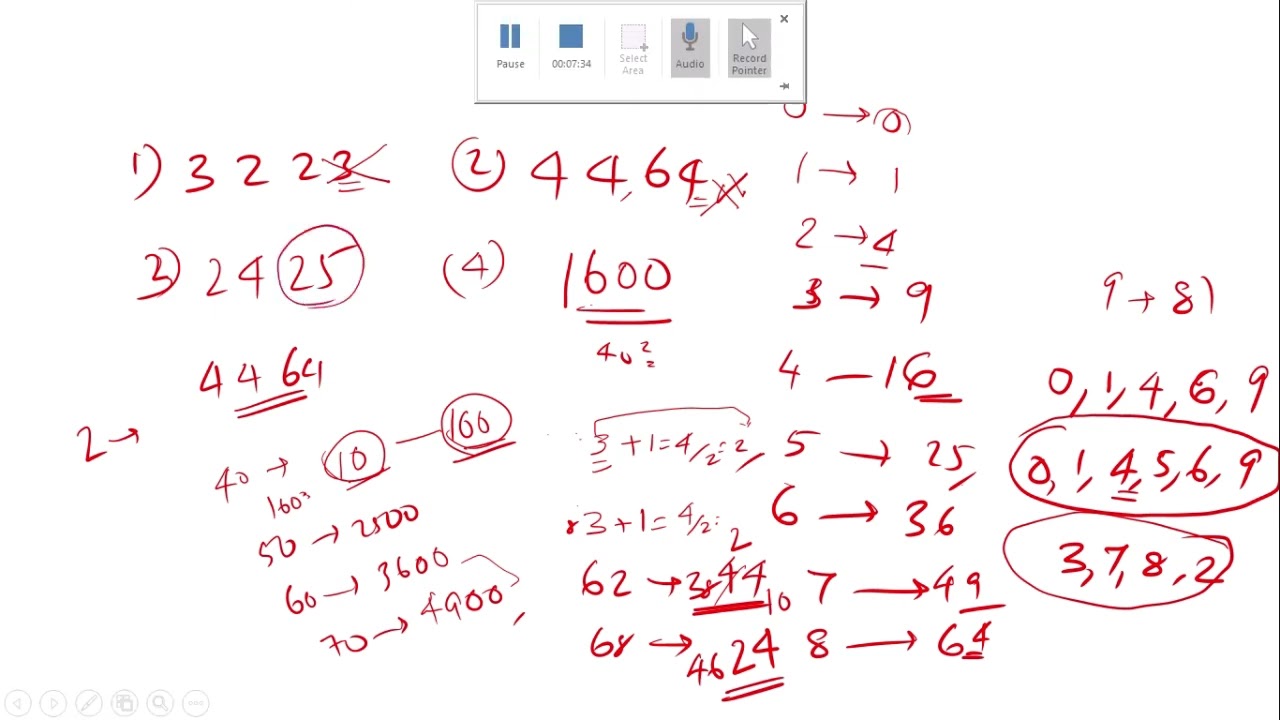 Pause
00:07:34
Select Area
Audio
Record Pointer
0 → 0
1) 3 2 2 3
(2) 4 4, 6 4
1 → 1
2 → 4
3) 24 25
(4) 1600
3 → 9
9 → 81
40²
4 4 64
4 — 16
0, 1, 4, 6, 9
2 →
40 → 10 — 100
3 + 1 = 4/2 = 2,
5 → 25,
0, 1, 4, 5, 6, 9
50 → 2500
3 + 1 = 4/2 = 2
6 → 36
60 → 3600
62 → 3844
10
7 → 49
3, 7, 8, 2
70 → 4900,
68 → 4624
8 → 64